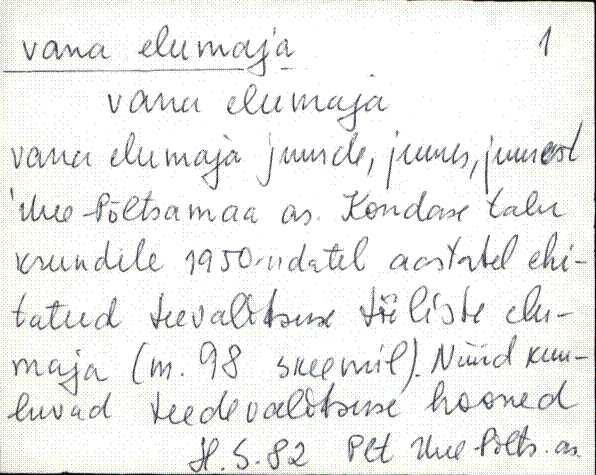 vana elumaja 1
vana elumaja
vana elumaja juurde, juures, juurest
Uue-Põltsamaa as. Kondase talu
krundile 1950-ndatel aastatel ehi-
tatud teevalitsuse tööliste elu-
maja (m. 98 skeemil). Nüüd kuu-
luvad teedevalitsuse hooned
H.S.82 Plt Uue-Põlts. as.